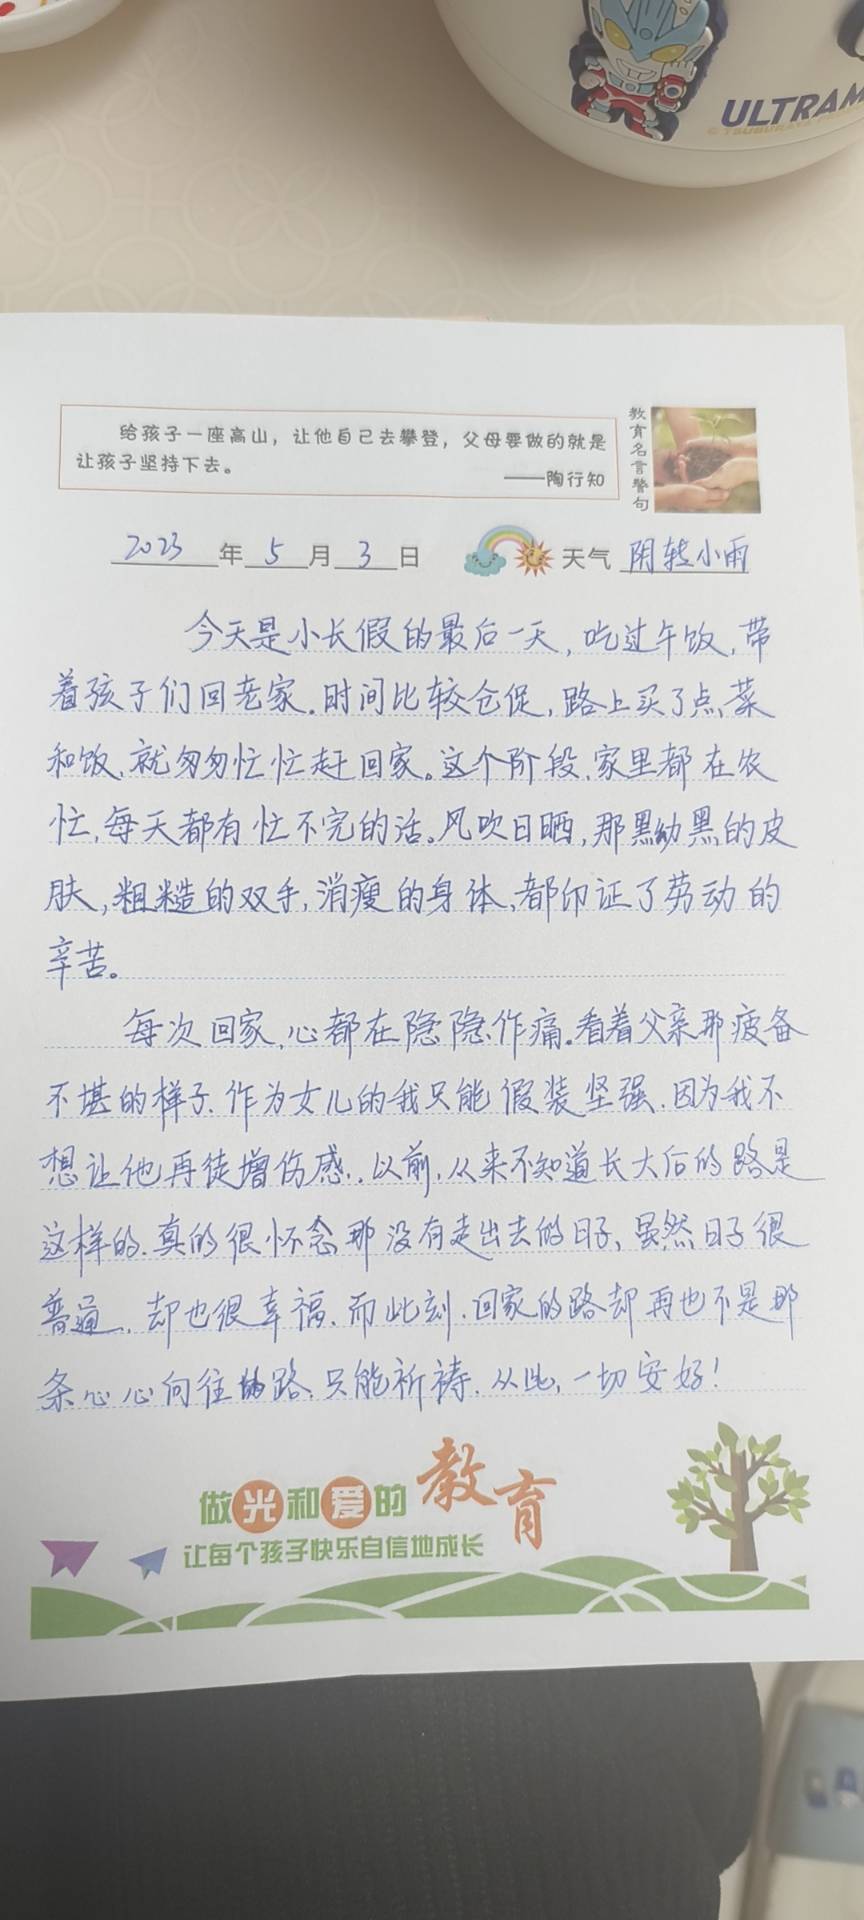 ULTRAM
给孩子一座高山，让他自己去攀登，父母要做的就是
让孩子坚持下去。
——陶行知
教育名言警句
2023年5月3日 天气 阴转小雨
今天是小长假的最后一天，吃过午饭，带
着孩子们回老家。时间比较仓促，路上买了点菜
和饭，就匆匆忙忙赶回家。这个阶段，家里都在农
忙，每天都有忙不完的活。风吹日晒，那黝黑的皮
肤，粗糙的双手，消瘦的身体，都印证了劳动的
辛苦。
每次回家，心都在隐隐作痛。看着父亲那疲备
不堪的样子，作为女儿的我只能假装坚强，因为我不
想让他再徒增伤感。以前，从来不知道长大后的路是
这样的，真的很怀念那没有走出去的日子，虽然日子很
普通，却也很幸福，而此刻，回家的路却再也不是那
条心心向往的路，只能祈祷，从此，一切安好！
做光和爱的教育
让每个孩子快乐自信地成长